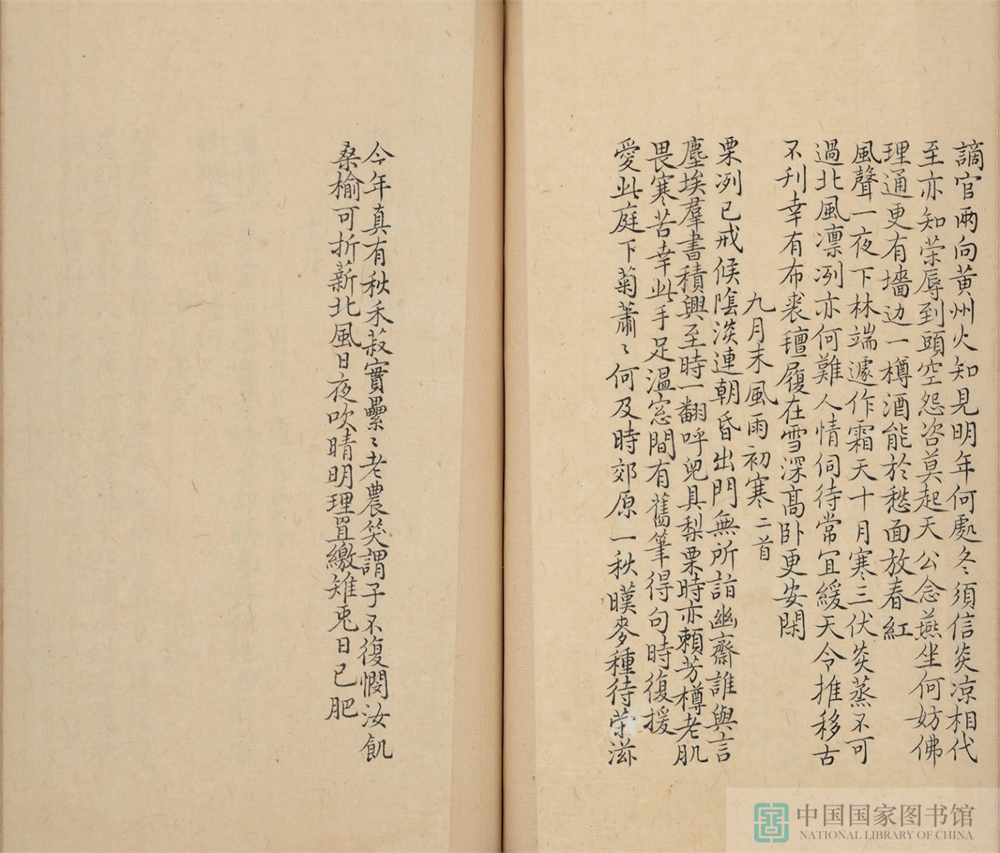 謫官兩向黄州火知見明年何處冬須信炎凉相代
至亦知荣辱到頭空怨咨莫起天公念燕坐何妨佛
理通更有墻边一樽酒能於愁面放春紅
風聲一夜下林端遽作霜天十月寒三伏炎蒸不可
過北風凛冽亦何難人情伺待常宜緩天令推移古
不刋幸有布裘氊履在雪深髙卧更安閑
九月末風雨初寒二首
栗冽已戒候陰淡連朝昏出門無所詣幽齋誰與言
塵埃羣書積興至時一翻呼兒具梨栗時亦頼芳樽老肌
畏寒苦幸此手足温窓間有舊筆得句時復援
愛此庭下菊蕭〻何及時郊原一秋暵麥種待荣滋
今年真有秋禾菽實纍〻老農笑謂子不復憫汝飢
桑榆可折薪北風日夜吹晴明理罝繳雉兎日已肥
中国国家图书馆
NATIONAL LIBRARY OF CHINA